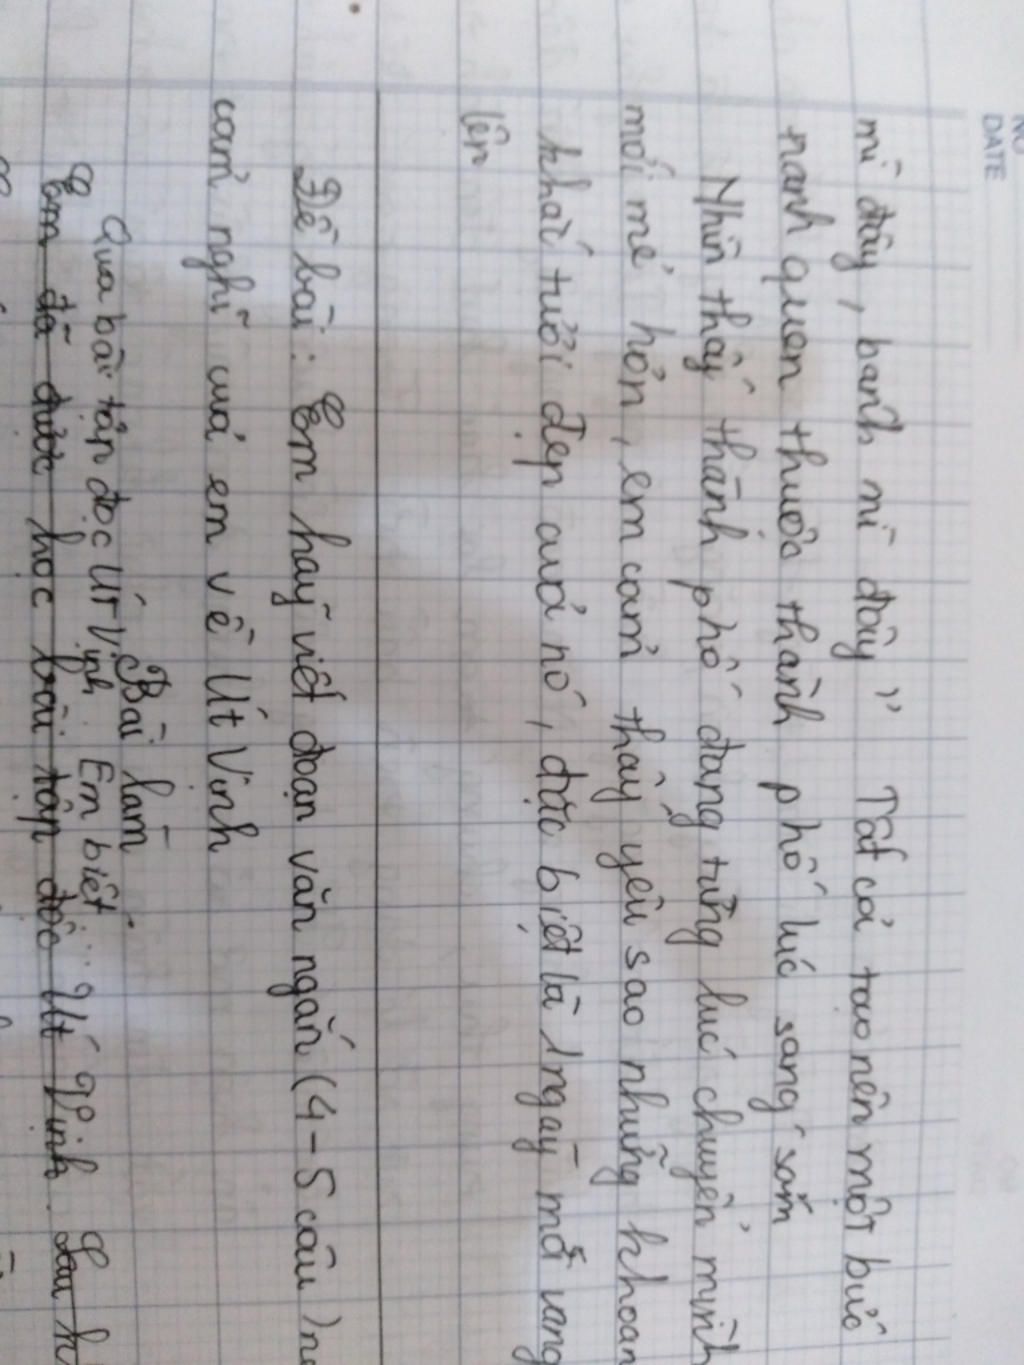 NO
DATE
mì đây, bánh mì đây" Tất cả tạo nên một bức
tranh quen thuộc thành phố lúc sáng sớm
Nhìn thấy thành phố đang từng lúc chuyển mình
mới mẻ hơn, em cảm thấy yêu sao những khoản
khắc tười đẹp cuả nó, đặc biệt là 1 ngaỳ mới vang
lên
Đề bài: Em haỹ viết đoạn văn ngắn (4-5 câu) n
cảm nghĩ cuả em về Út Vịnh
Bài làm
Qua bài tập đọc Út Vịnh. Em biết...
Em đã được học bài tập đọc Út Vịnh. Sau h